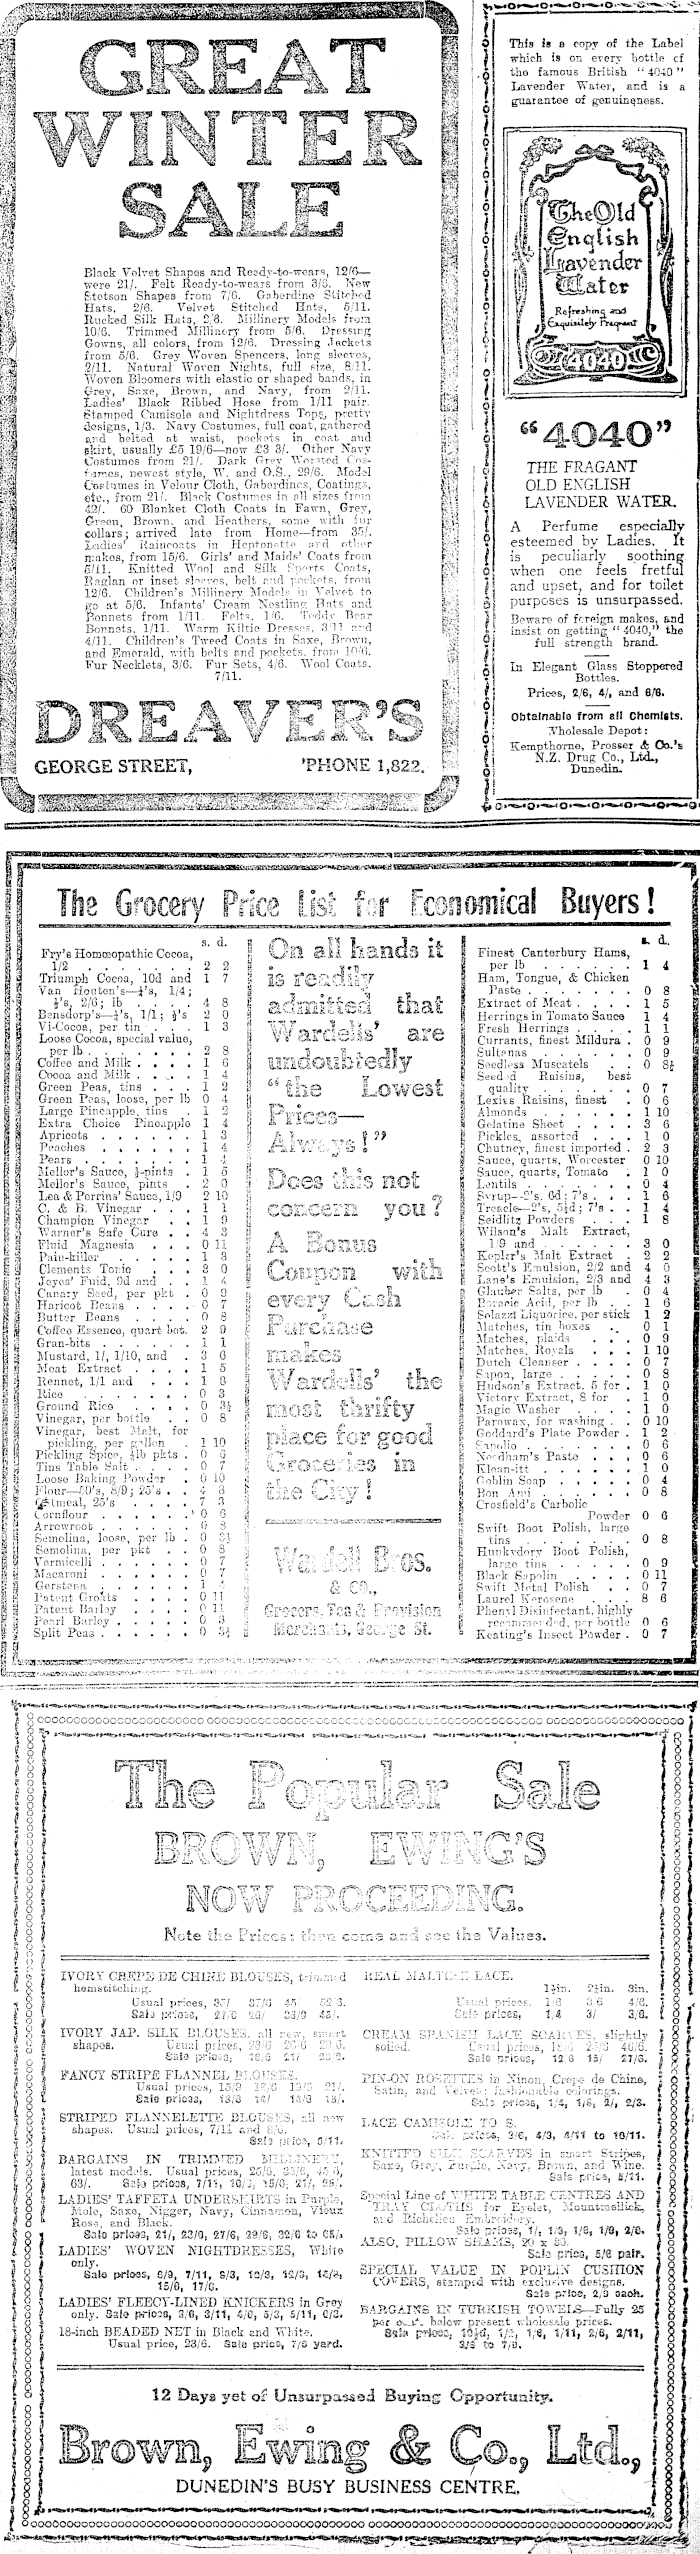 GREAT
WINTER
SALE
Black Velvet Shapes and Ready-to-wears, 12/6—
were 21/. Felt Ready-to-wears from 3/6. New
Stetson Shapes from 7/6. Gaberdine Stitched
Hats, 2/6. Velvet Stitched Hats, 5/11.
Rucked Silk Hats, 2/6. Millinery Models from
10/6. Trimmed Millinery from 5/6. Dressing
Gowns, all colors, from 12/6. Dressing Jackets
from 5/6. Grey Woven Spencers, long sleeves,
2/11. Natural Woven Nights, full size, 8/11.
Woven Bloomers with elastic or shaped bands, in
Grey, Saxe, Brown, and Navy, from 2/11.
Ladies' Black Ribbed Hose from 1/11 pair.
Stamped Camisole and Nightdress Tops, pretty
designs, 1/3. Navy Costumes, full coat, gathered
and belted at waist, pockets in coat and
skirt, usually £5 19/6—now £3 3/. Other Navy
Costumes from 21/. Dark Grey Worsted Cos-
tumes, newest style, W. and O.S., 29/6. Model
Costumes in Velour Cloth, Gaberdines, Coatings,
etc., from 21/. Black Costumes in all sizes from
42/. 60 Blanket Cloth Coats in Fawn, Grey,
Green, Brown, and Heathers, some with fur
collars; arrived late from Home—from 35/.
Ladies' Raincoats in Heptonette and other
makes, from 15/6. Girls' and Maids' Coats from
5/11. Knitted Wool and Silk Sports Coats,
Raglan or inset sleeves, belt and pockets, from
12/6. Children's Millinery Models in Velvet to
go at 5/6. Infants' Cream Nestling Hats and
Bonnets from 1/11. Felts, 1/6. Teddy Bear
Bonnets, 1/11. Warm Kiltie Dresses, 3/11 and
4/11. Children's Tweed Coats in Saxe, Brown,
and Emerald, with belts and pockets, from 10/6.
Fur Necklets, 3/6. Fur Sets, 4/6. Wool Coats,
7/11.
DREAVER'S
GEORGE STREET, 'PHONE 1,822.
This is a copy of the Label
which is on every bottle of
the famous British "4040"
Lavender Water, and is a
guarantee of genuineness.
The Old
English
Lavender
Water
Refreshing and
Exquisitely Fragrant
4040
"4040"
THE FRAGANT
OLD ENGLISH
LAVENDER WATER.
A Perfume especially
esteemed by Ladies. It
is peculiarly soothing
when one feels fretful
and upset, and for toilet
purposes is unsurpassed.
Beware of foreign makes, and
insist on getting "4040," the
full strength brand.
In Elegant Glass Stoppered
Bottles.
Prices, 2/6, 4/, and 6/6.
Obtainable from all Chemists.
Wholesale Depot:
Kempthorne, Prosser & Co.'s
N.Z. Drug Co., Ltd.,
Dunedin.
The Grocery Price List for Economical Buyers!
s. d.
Fry's Homœopathic Cocoa,
1/2 2 2
Triumph Cocoa, 10d and 1 7
Van Houten's—¼'s, 1/4;
½'s, 2/6; lb 4 8
Bensdorp's—¼'s, 1/1; ½'s 2 0
Vi-Cocoa, per tin 1 3
Loose Cocoa, special value,
per lb 2 8
Coffee and Milk 1 6
Cocoa and Milk 1 4
Green Peas, tins 1 2
Green Peas, loose, per lb 0 4
Large Pineapple, tins 1 2
Extra Choice Pineapple 1 4
Apricots 1 3
Peaches 1 4
Pears 1 4
Mellor's Sauce, ½-pints 1 5
Mellor's Sauce, pints 2 0
Lea & Perrins' Sauce, 1/9 2 10
C. & B. Vinegar 1 1
Champion Vinegar 1 9
Warner's Safe Cure 4 3
Fluid Magnesia 0 11
Pain-killer 1 8
Clements Tonic 3 0
Jeyes' Fuid, 9d and 1 4
Canary Seed, per pkt 0 9
Haricot Beans 0 7
Butter Beans 0 8
Coffee Essence, quart bot. 2 9
Gran-bits 1 1
Mustard, 1/, 1/10, and 3 6
Meat Extract 1 5
Rennet, 1/1 and 1 8
Rice 0 3
Ground Rice 0 3½
Vinegar, per bottle 0 8
Vinegar, best Malt, for
pickling, per gallon 1 10
Pickling Spice, ¼lb pkts 0 6
Tins Table Salt 0 7
Loose Baking Powder 0 10
Flour—50's, 8/9; 25's 4 8
Oatmeal, 25's 7 3
Cornflour 0 6
Arrowroot 0 8
Semolina, loose, per lb 0 3½
Semolina, per pkt 0 8
Vermicelli 0 7
Macaroni 0 7
Gerstena 1 4
Patent Groats 0 11
Patent Barley 0 11
Pearl Barley 0 3
Split Peas 0 3½
On all hands it
is readily
admitted that
Wardells' are
undoubtedly
"the Lowest
Prices—
Always!"
Does this not
concern you?
A Bonus
Coupon with
every Cash
Purchase
makes
Wardells' the
most thrifty
place for good
Groceries in
the City!
Wardell Bros.
& CO.,
Grocers, Tea & Provision
Merchants, George St.
s. d.
Finest Canterbury Hams,
per lb 1 4
Ham, Tongue, & Chicken
Paste 0 8
Extract of Meat 1 5
Herrings in Tomato Sauce 1 4
Fresh Herrings 1 1
Currants, finest Mildura 0 9
Sultanas 0 9
Seedless Muscatels 0 8½
Seeded Raisins, best
quality 0 7
Lexias Raisins, finest 0 6
Almonds 1 10
Gelatine Sheet 3 6
Pickles, assorted 1 0
Chutney, finest imported 2 3
Sauce, quarts, Worcester 0 10
Sauce, quarts, Tomato 1 0
Lentils 0 4
Syrup—2's, 6d; 7's 1 6
Treacle—2's, 5½d; 7's 1 4
Seidlitz Powders 1 8
Wilson's Malt Extract,
1/9 and 3 0
Kepler's Malt Extract 2 2
Scott's Emulsion, 2/2 and 4 0
Lane's Emulsion, 2/3 and 4 3
Glauber Salts, per lb 0 4
Boracic Acid, per lb 1 6
Solazzi Liquorice, per stick 1 2
Matches, tin boxes 0 1
Matches, plaids 0 9
Matches, Royals 1 10
Dutch Cleanser 0 7
Sapon, large 0 8
Hudson's Extract, 5 for 1 0
Victory Extract, 8 for 1 0
Magic Washer 1 0
Parowax, for washing 0 10
Goddard's Plate Powder 1 2
Sapolio 0 6
Needham's Paste 0 6
Klean-itt 1 0
Goblin Soap 0 4
Bon Ami 0 8
Crosfield's Carbolic
Powder 0 6
Swift Boot Polish, large
tins 0 8
Hunkydory Boot Polish,
large tins 0 9
Black Sapolin 0 11
Swift Metal Polish 0 7
Laurel Kerosene 8 6
Phenyl Disinfectant, highly
recommended, per bottle 0 6
Keating's Insect Powder 0 7
The Popular Sale
BROWN, EWING'S
NOW PROCEEDING.
Note the Prices; then come and see the Values.
IVORY CREPE DE CHINE BLOUSES, trimmed
hemstitching.
Usual prices, 35/ 37/6 45/ 52/6.
Sale prices, 27/6 29/ 36/9 43/.
IVORY JAP. SILK BLOUSES, all new, smart
shapes. Usual prices,
Sale prices, 18/6 21/
FANCY STRIPE FLANNEL BLOUSES.
Usual prices, 15/9 19/6 21/.
Sale prices,
STRIPED FLANNELETTE BLOUSES, all new
shapes. Usual prices, 7/11 and 8/6.
Sale price, 5/11.
BARGAINS IN TRIMMED MILLINERY,
latest models. Usual prices, 25/6,
63/. Sale prices, 7/11,
LADIES' TAFFETA UNDERSKIRTS in Purple,
Mole, Saxe, Nigger, Navy, Cinnamon, Vieux
Rose, and Black.
Sale prices, 21/, 23/9, 27/6, 29/6, 32/6 to
LADIES' WOVEN NIGHTDRESSES, White
only.
Sale prices, 6/9, 7/11, 9/3,
15/6, 17/6.
LADIES' FLEECY-LINED KNICKERS in Grey
only. Sale prices, 3/6, 3/11, 4/6, 5/3, 5/11, 6/3.
18-inch BEADED NET in Black and White.
Usual price, 23/6. Sale price, 7/6 yard.
REAL MALTESE LACE.
1½in. 2½in. 3in.
Usual prices, 1/6 3/6 4/6.
Sale prices, 1/4 3/ 3/6.
CREAM SPANISH LACE SCARVES, slightly
soiled. Usual prices,
Sale prices, 12/6 15/ 27/6.
PIN-ON ROSETTES in Ninon, Crepe de Chine,
Satin, and Velvet; fashionable colorings.
Sale prices, 1/4, 1/6, 2/, 2/3.
LACE CAMISOLE TOPS.
Sale prices, 3/6, 4/3, 4/11 to 10/11.
KNITTED SILK SCARVES in smart Stripes,
Saxe, Grey, Purple, Navy, Brown, and Wine.
Sale price, 5/11.
Special Line of WHITE TABLE CENTRES AND
TRAY CLOTHS for Eyelet, Mountmellick,
and Richelieu Embroidery.
Sale prices, 1/, 1/3, 1/6, 1/9, 2/6.
ALSO, PILLOW SHAMS, 20 x 30.
Sale price, 5/6 pair.
SPECIAL VALUE IN POPLIN CUSHION
COVERS, stamped with exclusive designs.
Sale price, 2/3 each.
BARGAINS IN TURKISH TOWELS—Fully 25
per cent. below present wholesale prices.
Sale prices, 10½d, 1/3, 1/6, 1/11, 2/6, 2/11,
3/3 to 7/9.
12 Days yet of Unsurpassed Buying Opportunity.
Brown, Ewing & Co., Ltd.,
DUNEDIN'S BUSY BUSINESS CENTRE.